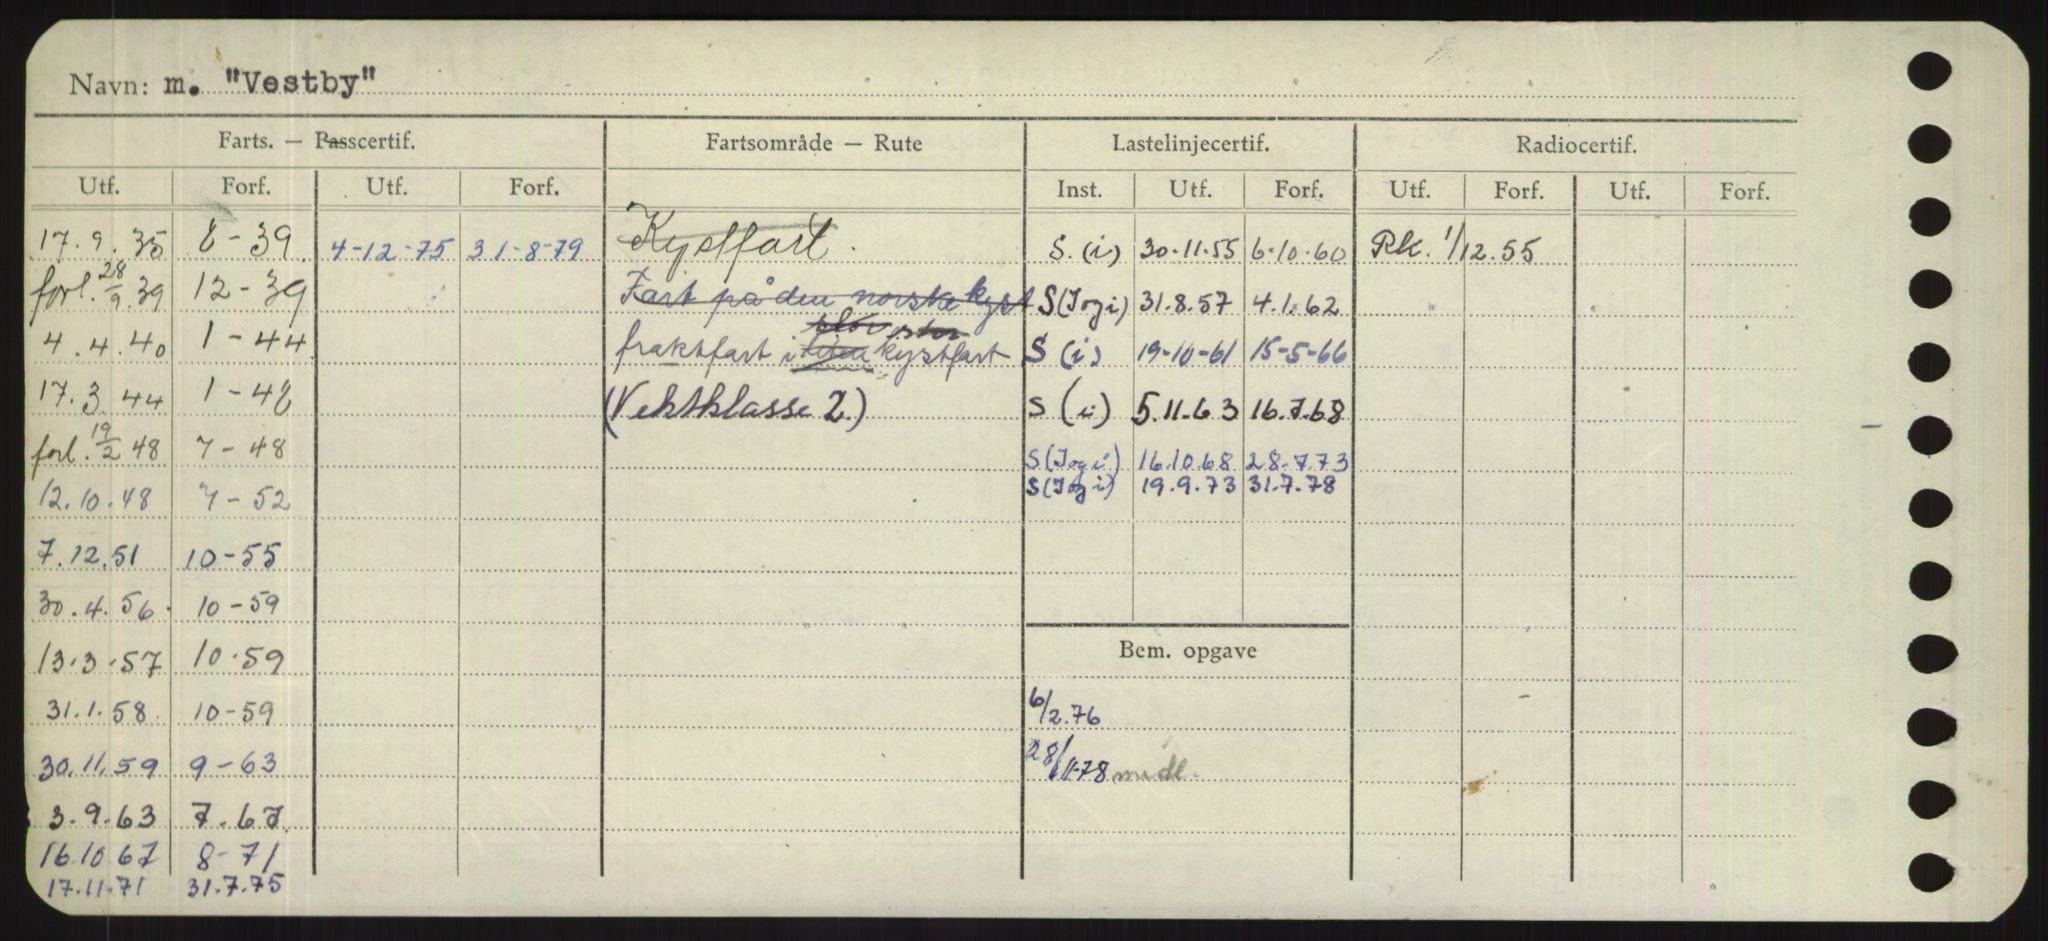 Navn: m. "Vestby"
Farts. — Passcertif. Fartsområde — Rute Lastelinjecertif. Radiocertif.
Utf. Forf. Utf. Forf. Inst. Utf. Forf. Utf. Forf. Utf. Forf.
17.9.35 8-39 4-12-75 31-8-79 Kystfart. S.(i) 30.11.55 6.10.60 Rk. 1/12.55
forl. 28/9.39 12-39 Fart på den norske kyst S(Jogi) 31.8.57 4.1.62
stor
4.4.40 1-44 fraktfart i liten kystfart S (i) 19-10-61 15-5-66
17.3.44 1-48 (Vektklasse 2.) S (i) 5.11.63 16.7.68
forl. 19/2 48 7-48 S(Jogi) 16.10.68 28.7.73
12.10.48 7-52 S(Jogi) 19.9.73 31.7.78
7.12.51 10-55
30.4.56. 10-59
13.3.57 10.59 Bem. opgave
31.1.58. 10-59 6/2.76
30.11.59 9-63 28/11-78 midl.
3.9.63 7.67
16.10.67 8-71
17.11.71 31.7.75